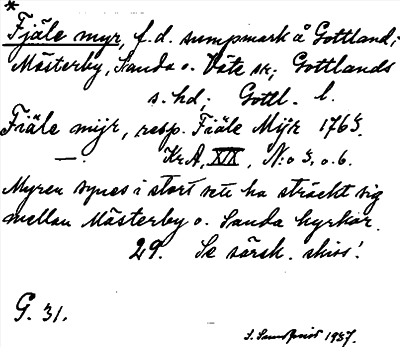 *
Fjäle myr, f.d. sumpmark å Gottland;
Mästerby, Sanda o. Väte sk; Gottlands
s. hd; Gottl. l.
Fiäle mijr, resp. Fiäle Mijr 1763.
—. KrA, XIX, N:o 3, o. 6.
Myren synes i stort sett ha sträckt sig
mellan Mästerby o. Sanda kyrkor.
29. Se särsk. skiss!
G. 31.
1937.